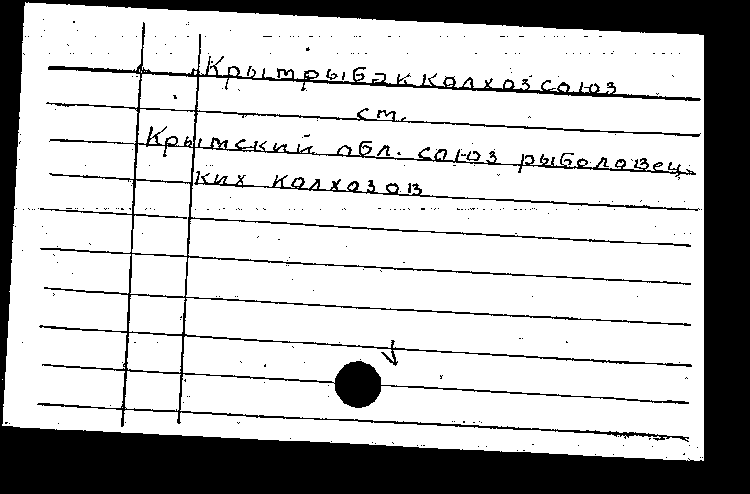 Крымрыбакколхозсоюз
см.
Крымский обл. союз рыболовец-
ких колхозов